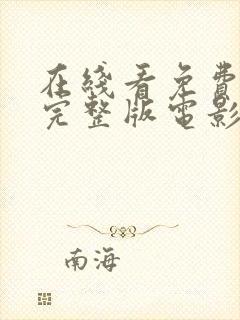 在线看免費
完整版電影
南海